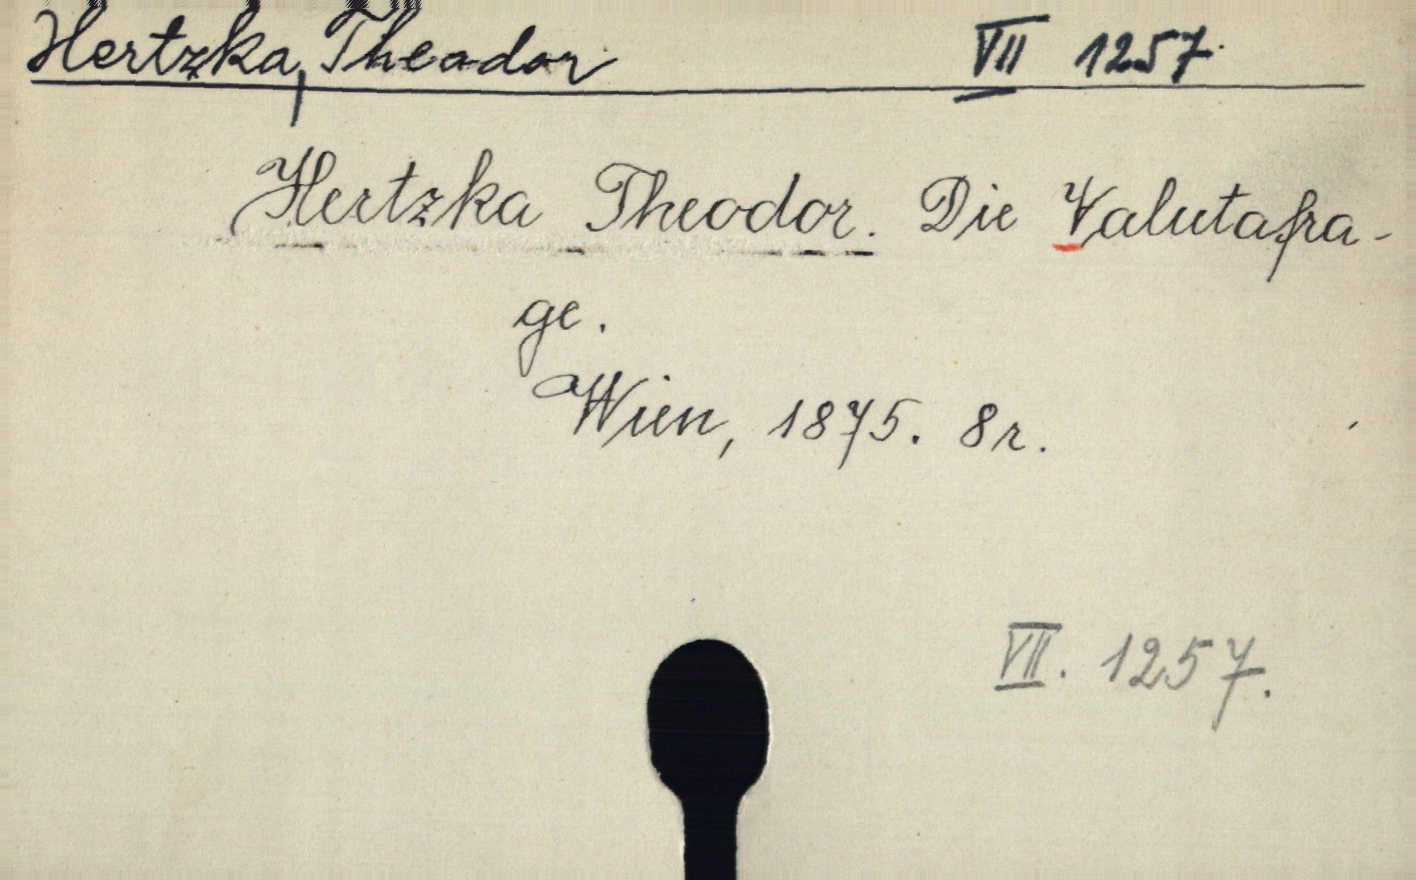 Hertzka, Theodor VII 1257.
Hertzka Theodor. Die Valutafra-
ge.
Wien, 1875. 8r.
VII. 1257.